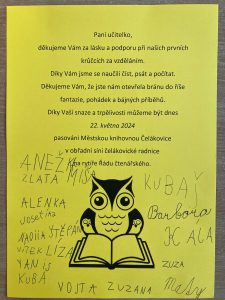 Paní učitelko,
děkujeme Vám za lásku a podporu při našich prvních
krůčcích za vzděláním.
Díky Vám jsme se naučili číst, psát a počítat.
Děkujeme Vám, že jste nám otevřela bránu do říše
fantazie, pohádek a bájných příběhů.
Díky Vaší snaze a trpělivosti můžeme být dnes
22. května 2024
pasováni Městskou knihovnou Čelákovice
v obřadní síni čelákovické radnice
na rytíře Řádu čtenářského.
ANEŽKA
ZLATA MÍŠA
KUBAJ
ALENKA
Josefína
Barbora
Nadiia ŠTĚPÁN
KALA
VÍTEK LÍZA
YANIS
ZUZA
KUBA
VOJTA ZUZANA
Matěj